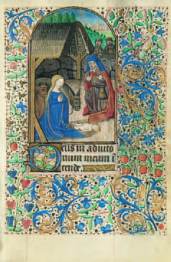 Deus in aduto
rium meum in
tende.